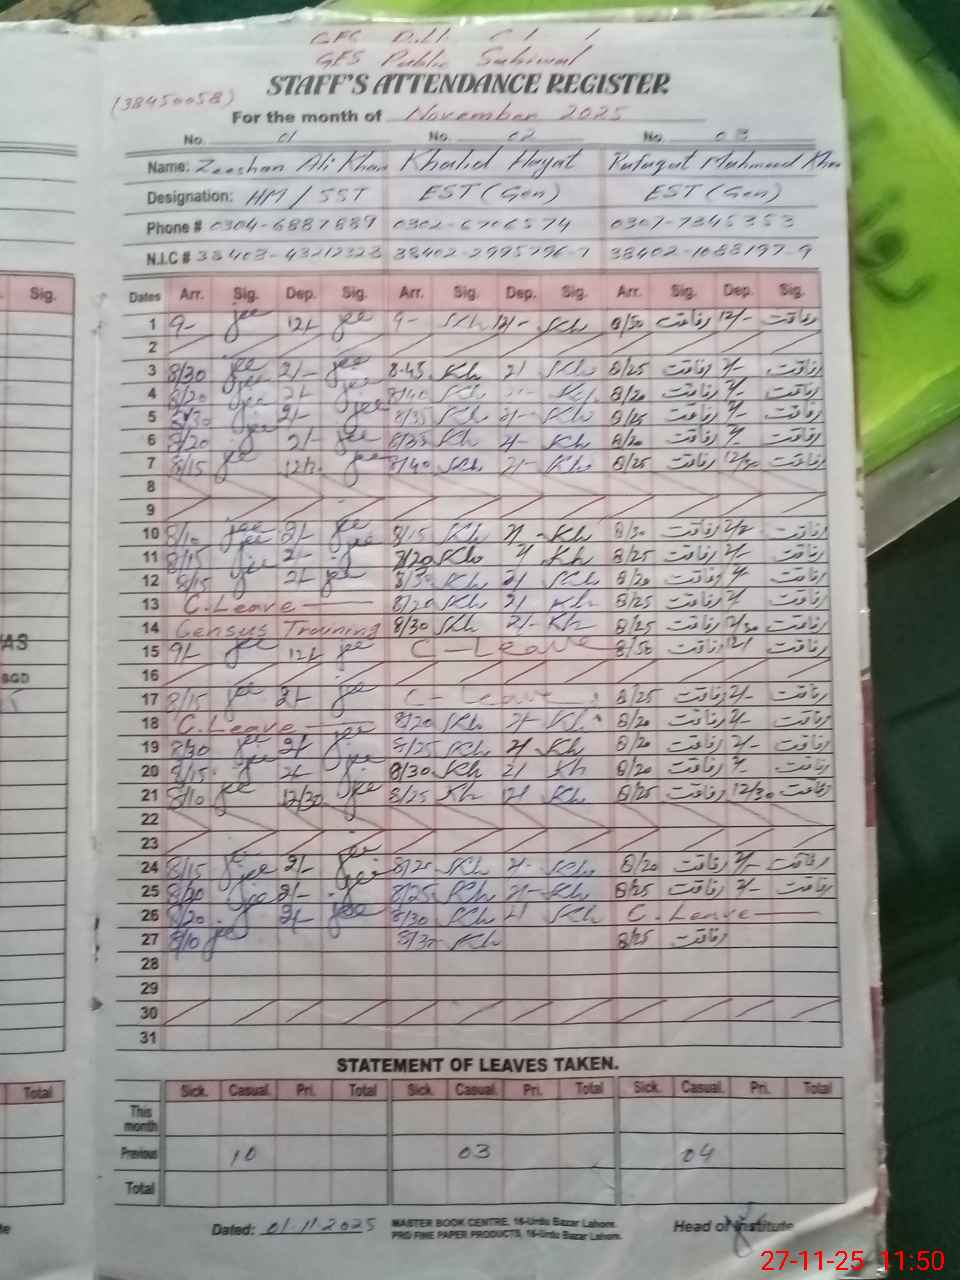 GFS Public Sahiwal
STAFF'S ATTENDANCE REGISTER
(38450058)
For the month of November 2025
No. 01 No. 02 No. 03
Name: Zeeshan Ali Khan Khalid Hayat Rafaqat Mahmood Khan
Designation: HM / SST EST (Gen) EST (Gen)
Phone # 0304-6887889 0302-6706574 0307-7345353
N.I.C # 38403-43212323 38402-2995796-7 38402-1088197-9
Sig. Dates Arr. Sig. Dep. Sig. Arr. Sig. Dep. Sig. Arr. Sig. Dep. Sig.
1 9- 12/- 9- Kh 12/- Kh 8/50 رفاقت 12/- رفاقت
2
3 8/30 2/- 8-45 Kh 2/ Kh 8/25 رفاقت 2/- رفاقت
4 8/20 2/- 8/40 Kh Kh 8/20 رفاقت 2/- رفاقت
5 8/30 2/- 8/35 Kh 2/- Kh 8/25 رفاقت 2/- رفاقت
6 8/20 2/- 8/35 Kh 2/- Kh 8/20 رفاقت 2/- رفاقت
7 8/15 8/40 Kh 2/- Kh 8/25 رفاقت 12/30 رفاقت
8
9
10 8/10 2/- 8/15 Kh 2/- Kh 8/30 رفاقت رفاقت
11 8/15 2/- 8/20 Kh 2/ Kh 8/25 رفاقت 2/- رفاقت
12 8/15 2/- 8/30 Kh 2/ Kh 8/20 رفاقت 2/- رفاقت
13 C.Leave 8/20 Kh 2/ Kh 8/25 رفاقت 2/ رفاقت
14 Census Training 8/30 Kh 2/- Kh 8/25 رفاقت رفاقت
15 9/- 12/- C-Leave 8/50 رفاقت 12/ رفاقت
16
17 8/15 2/- C-Leave 8/25 رفاقت 2/- رفاقت
18 C.Leave 8/20 Kh 2/- Kh 8/20 رفاقت 2/- رفاقت
19 8/30 2/- 8/25 Kh 2/ Kh 8/20 رفاقت 2/- رفاقت
20 8/15 2/- 8/30 Kh 2/ Kh 8/20 رفاقت 2/- رفاقت
21 8/10 12/30 8/25 Kh 12/ Kh 8/25 رفاقت 12/30 رفاقت
22
23
24 8/15 2/- 8/25 Kh 2/- Kh 8/20 رفاقت 2/- رفاقت
25 8/20 2/- 8/25 Kh 2/- Kh 8/25 رفاقت 2/- رفاقت
26 8/20 2/- 8/30 Kh 2/ Kh C.Leave
27 8/10 8/30 Kh 8/25 رفاقت
28
29
30
31
STATEMENT OF LEAVES TAKEN.
Total Sick. Casual. Pri. Total Sick. Casual. Pri. Total Sick. Casual. Pri. Total
This month
Previous 10 03 04
Total
Dated: 01.11.2025 MASTER BOOK CENTRE, 16-Urdu Bazar Lahore. Head of Institute
PRO FINE PAPER PRODUCTS, 16-Urdu Bazar Lahore.
27-11-25 11:50